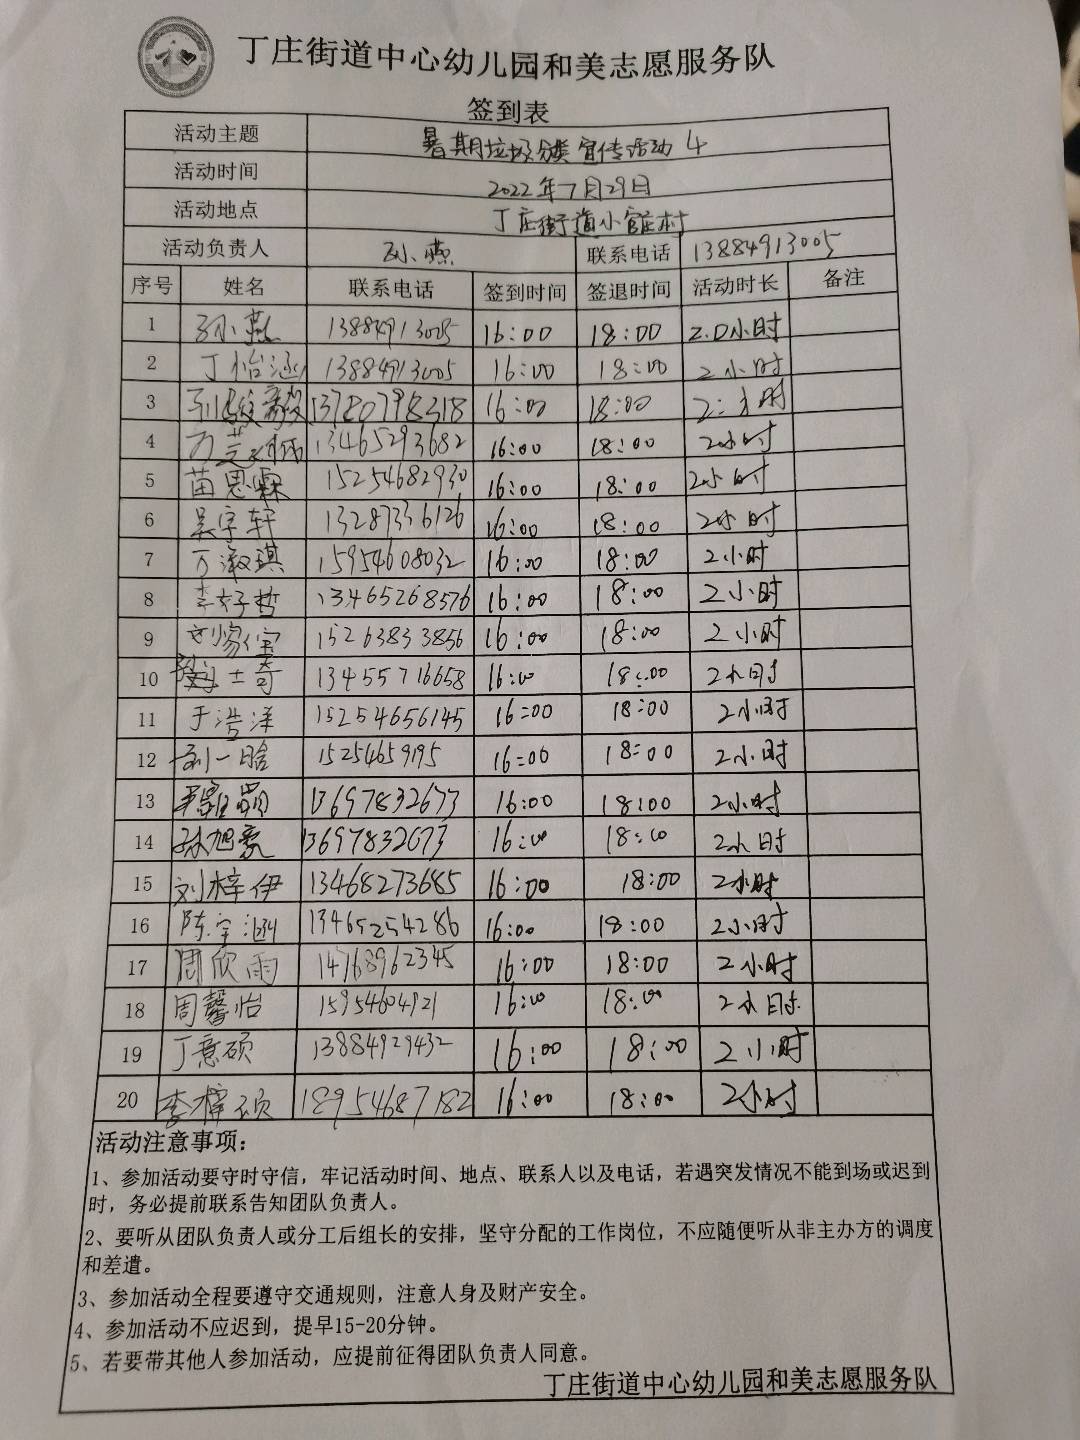 丁庄街道中心幼儿园和美志愿服务队
签到表
活动主题 暑期垃圾分类宣传活动4
活动时间 2022年7月29日
活动地点 丁庄街道小官庄村
活动负责人 孙燕 联系电话 13884913005
序号 姓名 联系电话 签到时间 签退时间 活动时长 备注
1 孙燕 13884913005 16:00 18:00 2.0小时
2 丁怡涵 13884913005 16:00 18:00 2小时
3 13780798318 16:00 18:00 2小时
4 13465293682 16:00 18:00 2小时
5 苗思霖 15254682930 16:00 18:00 2小时
6 吴宇轩 13287336126 16:00 18:00 2小时
7 万淑琪 15954608032 16:00 18:00 2小时
8 李好哲 13465268576 16:00 18:00 2小时
9 15263833856 16:00 18:00 2小时
10 13455716658 16:00 18:00 2小时
11 于浩洋 15254656145 16:00 18:00 2小时
12 刘一晗 15254659195 16:00 18:00 2小时
13 13697832673 16:00 18:00 2小时
14 孙旭豪 13697832673 16:00 18:00 2小时
15 刘梓伊 13468273685 16:00 18:00 2小时
16 陈宇涵 13465254286 16:00 18:00 2小时
17 周欣雨 14768962345 16:00 18:00 2小时
18 周馨怡 15954604921 16:00 18:00 2小时
19 丁意硕 13884929432 16:00 18:00 2小时
20 李梓硕 18954687182 16:00 18:00 2小时
活动注意事项：
1、参加活动要守时守信，牢记活动时间、地点、联系人以及电话，若遇突发情况不能到场或迟到
时，务必提前联系告知团队负责人。
2、要听从团队负责人或分工后组长的安排，坚守分配的工作岗位，不应随便听从非主办方的调度
和差遣。
3、参加活动全程要遵守交通规则，注意人身及财产安全。
4、参加活动不应迟到，提早15-20分钟。
5、若要带其他人参加活动，应提前征得团队负责人同意。
丁庄街道中心幼儿园和美志愿服务队